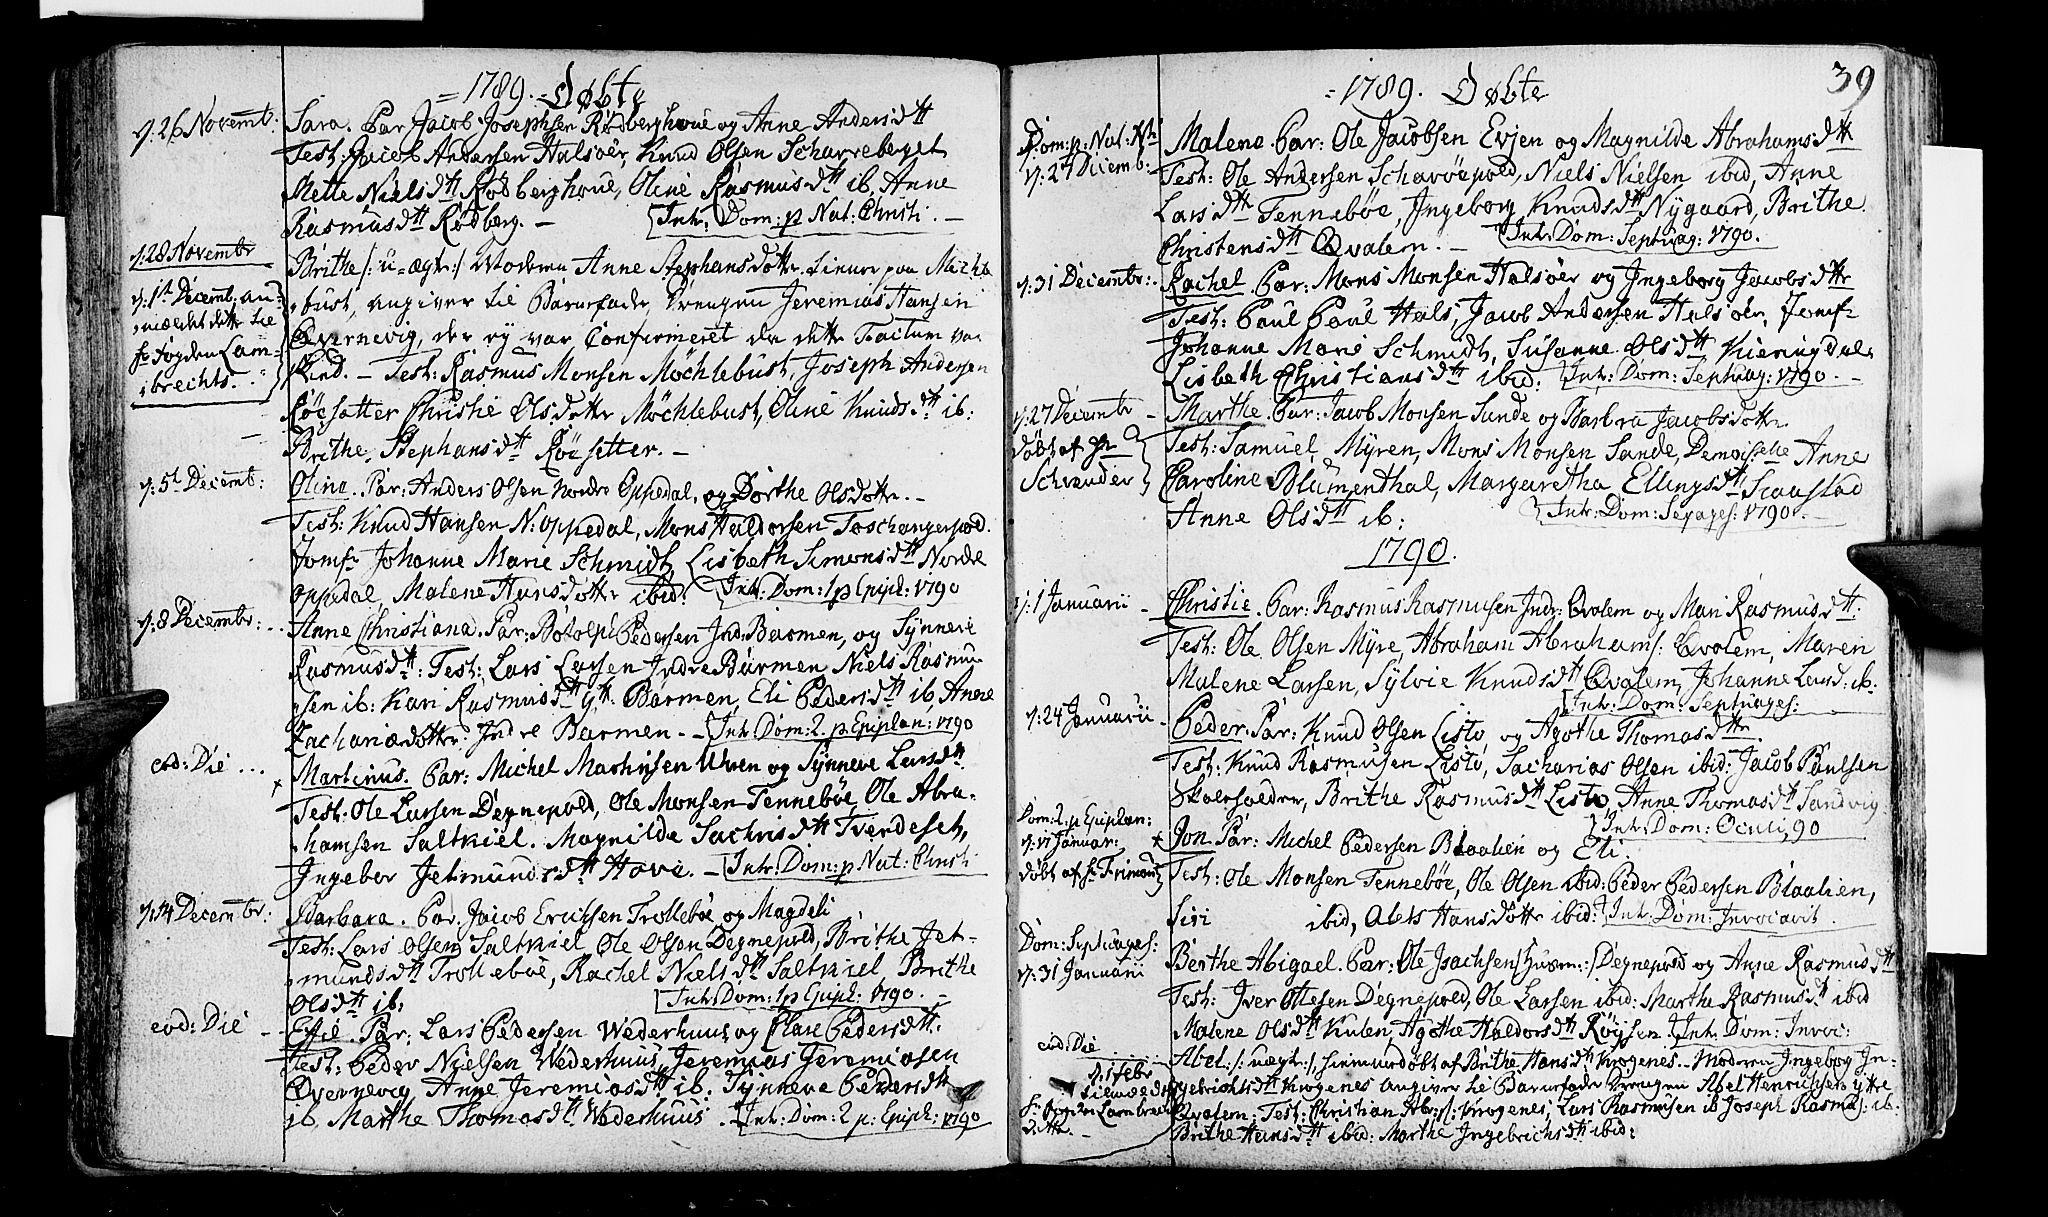 = 1789. Døbte
d: 26 Novembr:
Sara. Par Jacob Josephsen Rødberghoue og Anne Andersdttr
Test: Jacob Andersen Halsøer, Knud Olsen Scharreberget
Mette Nielsdttr Rødberghoue, Oline Rasmusdttr ib, Anne
Rasmusdttr Rødberg. — Intr: Dom: p Nat: Christi. —
d: 28 Novembr
d: 1st Decemb: an-
mældet dette til
hr Fogden Lam-
brechts.
Brithe /: u-ægte :/ Moderen Anne Stephansdotter tienner paa Michle
bust, angiver til Barnefader Drengen Jeremias Hansen
Qvernevig, der ey var Confirmeret da dette Factum var
skeed. — Test: Rasmus Monsen Möchlebust, Joseph Andersen
Röesetter Christie Olsdotter Möchlebust, Oline Knudsdttr ib:
Brithe Stephansdttr Röesetter. —
d: 5t Decemb:
Olina. Par: Anders Olsen Nordre Oppedal, og Dorthe Olsdotter. —
Test: Knud Hansen N: Oppedal, Mons Haldorsen Toschangerpold.
Jomfr Johanne Marie Schmidt, Lisbeth Simonsdttr Nordre
Oppedal, Malene Hansdotter ibid: Intr: Dom: 1 p Epiph: 1790
d: 8 Decembr:
Anne Christiana. Par: Botolph Pedersen Ind: Barmen, og Synneve
Rasmusdttr: Test: Lars Larsen Indre Barmen Niels Rasmu-
sen ib: Kari Rasmusdttr ytr. Barmen, Eli Pedersdttr ib, Anne
Zachariædotter Indre Barmen. — Intr: Dom: 2. p Epiphan: 1790
eod: Die ...
× Martinus. Par: Michel Marthisen Uhren og Synneve Larsdttr.
Test: Ole Larsen Degnepold, Ole Monsen Tenneböe Ole Abra-
hamsen Saltkiel. Magnilde Sachrisdttr Tverdeseth,
Ingebor Jetmundsdttr Hove. — Intr: Dom: p Nat: Christi
d: 14 Decembr:
Barbara. Par: Jacob Erichsen Trolleböe og Magdeli
Test: Lars Olsen Saltkiel, Ole Olsen Degnepold, Brithe Jet-
mundsdttr Trolleböe, Rachel Nielsdttr Saltkiel, Brithe
Olsdttr ib: Intr: Dom: 1 p Epiph: 1790. —
eod: Die —
Effie. Par: Lars Pedersen Wederhuus og Clare Pedersdttr.
Test: Peder Nielsen Wederhuus Jeremias Jeremiasen
Qvernevig Anne Jeremiasdttr ib: Synneva Pedersdttr
ib. Marthe Thomasdttr Wederhuus. Intr: Dom: 2 p: Epiph: 1790
= 1789. Døbte
39
Dom: p: Nat: Xsti
d: 27 Decemb:
Malene. Par: Ole Jacobsen Evjen og Magnilde Abrahamsdttr
Test: Ole Andersen Scharöepold, Niels Nielsen ibid, Anne
Larsdttr Tenneböe, Ingeborg Knudsdttr Nygaard, Brithe
Christensdttr Qvalem. — Intr: Dom: Septuag: 1790.
d: 31 Decembr:
Rachel. Par: Mons Monsen Halsöer og Ingeborg Jacobsdttr
Test: Paul Paul Hals; Jacob Andersen Halsöer, Jomfr
Johanne Marie Schmidt, Susanne Olsdttr Kieringdal,
Lisbeth Christiansdttr ibid: Intr: Dom: Septuag: 1790. —
d: 27 Decembr —
döbt af Hr
Schrøuder
Marthe. Par: Jacob Monsen Sunde og Barbra Jacobsdotter
Test: Samuel, Myren, Mons Monsen Sande, Demoiselle Anne
Caroline Blumenthal, Margaretha Ellingsdttr Staastad
Anne Olsdttr ib: Intr: Dom: Sexages: 1790 —
1790.
d: 1 Januarii —
Christie. Par: Rasmus Rasmusen Indr: Qvalem og Mari Rasmusdttr:
Test: Ole Olsen Myre, Abraham Abrahams: Qvalem, Maren
Malene Larsen, Sylvie Knudsdttr Qvalem, Johanne Larsd: ib:
Intr: Dom: Septuages:
d: 24 Januarii —
Peder. Par: Knud Olsen Listö og Agothe Thomasdttr
Test: Knud Rasmusen Listö, Sacharias Olsen ibid: Jacob Paulsen
Skoeholder, Brithe Rasmusdttr Listö, Anne Thomasdttr Sandvig
Intr: Dom: Oculi, 90
Dom: 2. p Epiphan:
d: 17 Januar:
döbt af hr Frimann
× Jon Par: Michel Pedersen Blaalien og Eli.
Test: Ole Monsen Tenneböe, Ole Olsen ibid: Peder Pedersen Blaalien,
Siri ibid, Alets Hansdotter ibid: Intr: Dom: Invocavit.
Dom: Septuages:
d: 31 Januarii
Berthe Abigael. Par: Ole Isachsen /: huusm: :/ Degnepold og Anne Rasmusdttr
Test: Iver Ottesen Degnepold, Ole Larsen ibid: Marthe Rasmusdttr ibid
Malene Olsdttr Kulen, Agothe Haldorsdttr Röysen. Intr: Dom: Invoc:
eod: Die
d: 1 Febr
tilmeldt
Hr Fogden Lambrechts
dette. —
Abel /: uægt: :/ hiemmedöbt af Brithe Hansdttr Krogenes. Moderen Ingeborg In-
gebrichsdttr Krogenes angiver til Barnefader Drengen Abel Henrichsen yttre
Qvalem. Test: Christian Abr: /: Krogenes, Lars Rasmusen ib Joseph Rasm: ib:
Brithe Hansdttr ibid: Marthe Ingebrichsdttr ibid: